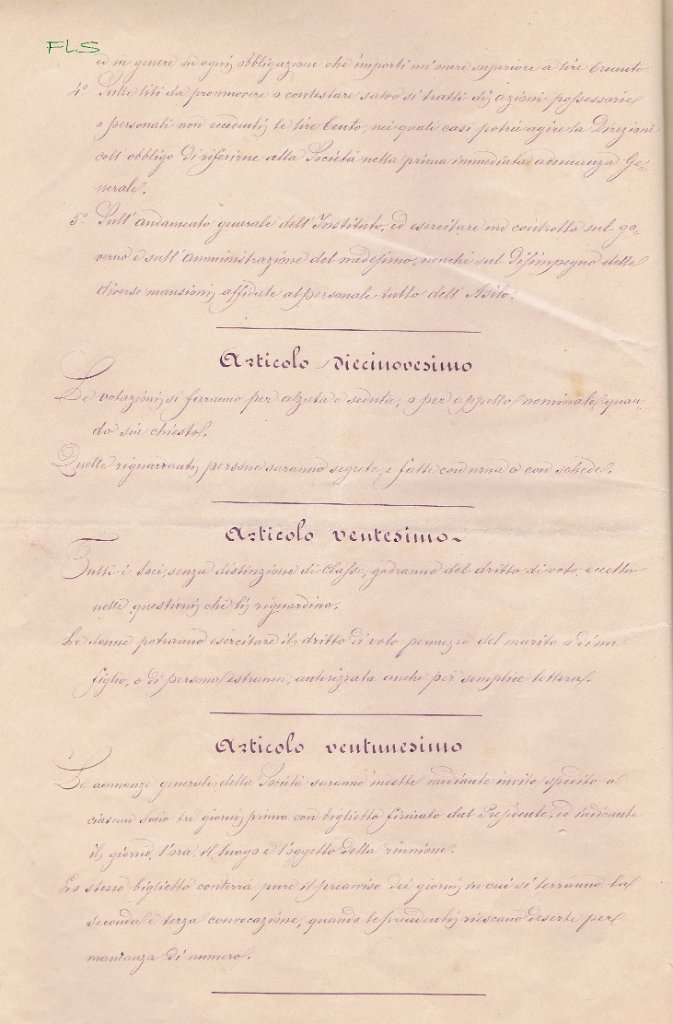 FLS
ed in genere su ogni obbligazione che importi un'onere superiore a lire trecento.
4° Sulle liti da promuovere o contestare salvo si tratti di azioni possessorie
o personali non eccedenti le lire cento, nei quali casi potrà agire la Direzione
coll'obbligo di riferirne alla Società nella prima immediata adunanza Ge-
nerale.
5° Sull'andamento generale dell'Instituto, ed esercitare un controllo sul go-
verno e sull'amministrazione del medesimo, nonché sul disimpegno delle
diverse mansioni affidate al personale tutto dell'Asilo.
Articolo diecinovesimo
Le votazioni si faranno per alzata e seduta, o per appello nominale quan-
do sia chiesto.
Quelle riguardanti persone saranno segrete, e fatte con urna o con schede.
Articolo ventesimo
Tutti i Soci, senza distinzione di Classe, godranno del dritto di voto, eccetto
nelle questioni che li riguardino.
Le donne potranno esercitare il dritto di voto per mezzo del marito o di un
figlio, o di persona estranea, autorizzata anche per semplice lettera.
Articolo ventunesimo
Le adunanze generali della Società saranno indette mediante invito spedito a
ciascun socio tre giorni prima con biglietto firmato dal Presidente, ed indicante
il giorno, l'ora, il luogo e l'oggetto della riunione.
Lo stesso biglietto conterrà pure il preavviso dei giorni in cui si terranno la
seconda e terza convocazione, quando le precedenti riescano deserte per
mancanza di numero.